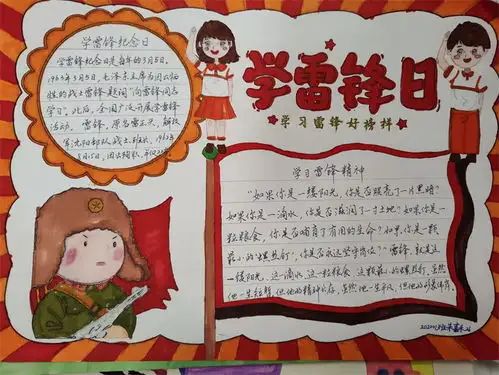 学雷锋纪念日
学雷锋纪念日是每年的3月5日。
1963年3月5日,毛泽东主席为因公牺
牲的战士雷锋题词“向雷锋同志
学习”。此后,全国广泛开展学雷锋
活动。雷锋,原名雷正兴,解放
军沈阳部队战士、班长,1962年
8月15日,因公殉职,年仅22
学雷锋日
学习雷锋好榜样
学习雷锋精神
“如果你是一缕阳光,你是否照亮了一片黑暗?
如果你是一滴水,你是否滋润了一寸土地?如果你是一
粒粮食,你是否哺育了有用的生命?如果你是一颗
最小的螺丝钉,你是否永远坚守岗位?”雷锋,就是这
一缕阳光,这一滴水,这一粒粮食,这颗最小的螺丝钉,虽然
他一生短暂,但他的精神长存,虽然他一生平凡,但他的形象伟岸。